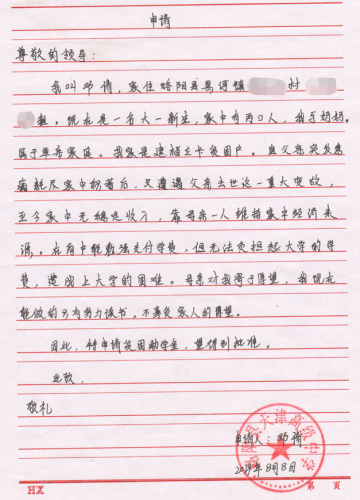 申请
尊敬的领导：
我叫邓倩，家住略阳县黑河镇 村
组。现在是一名大一新生，家中有两口人，我与妈妈。
属于单亲家庭。我家是建档立卡贫困户。自父亲突发疾
病耗尽家中积蓄后，又遭遇父亲去世这一重大变故，
至今家中无稳定收入，靠母亲一人维持家中经济来
源。在高中能勉强支付学费，但无法负担起大学的学
费，遭遇上大学的困难。母亲对我寄于厚望，我现在
能做的只有努力读书，不辜负家人的厚望。
因此，特申请贫困助学金，望得到批准。
此致，
敬礼
申请人：邓倩
8月8日
略阳县天津高级中学
HX 第 页